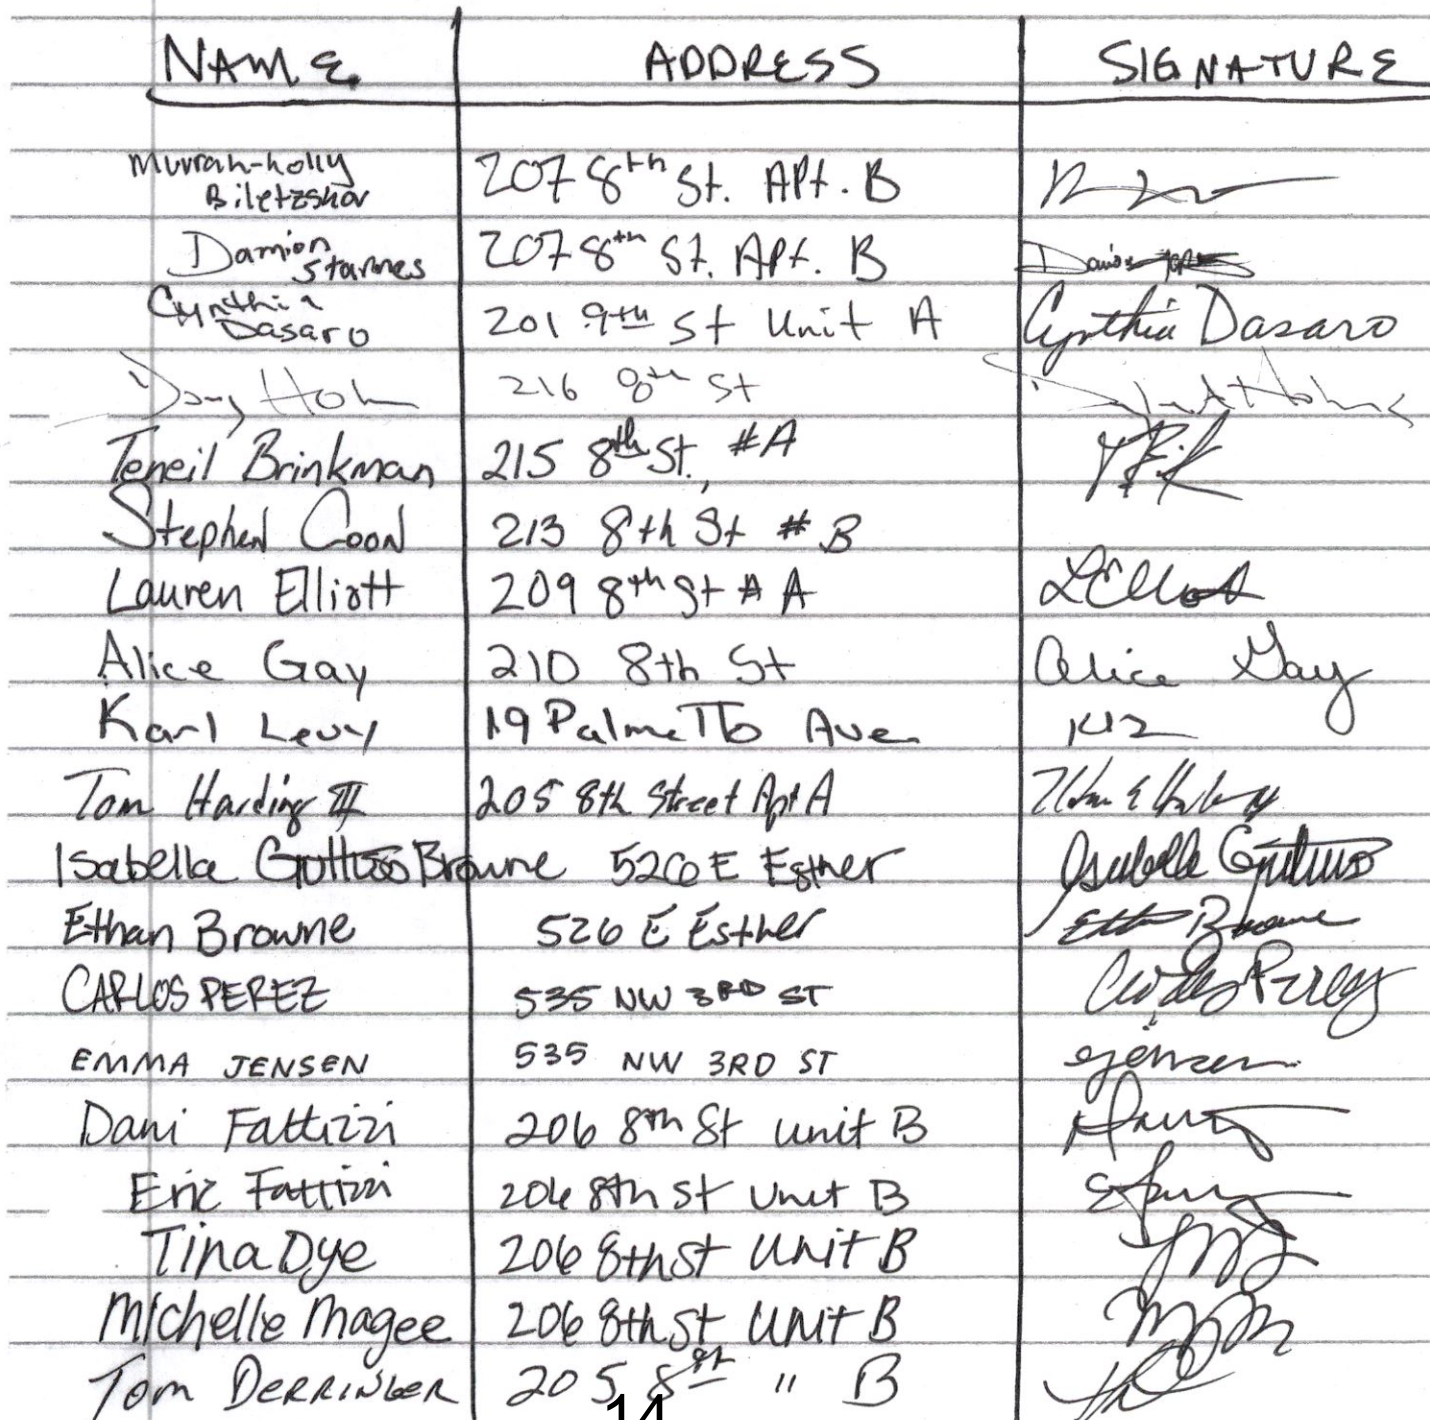 NAME ADDRESS SIGNATURE
Murrah-holly
Biletzskov 207 8th St. APt. B
Damion
Starnes 207 8th St. APt. B
Cynthia
Dasaro 201 9th St Unit A Cynthia Dasaro
216 8th St
Teneil Brinkman 215 8th St., #A
Stephen Coon 213 8th St # B
Lauren Elliott 209 8th St # A LElliott
Alice Gay 210 8th St Alice Gay
Karl Levy 19 Palmetto Ave.
Tom Harding III 205 8th Street Apt A
Isabella Guttuso Browne 526 E Esther Isabella Guttuso
Ethan Browne 526 E Esther Ethan Browne
CARLOS PEREZ 535 NW 3RD ST Carlos Perez
EMMA JENSEN 535 NW 3RD ST ejensen
Dani Fattizzi 206 8th St unit B
Eric Fattizzi 206 8th St Unit B
Tina Dye 206 8th St Unit B
Michelle Magee 206 8th St UNIT B
Tom DERRINGER 205 8th " B
14